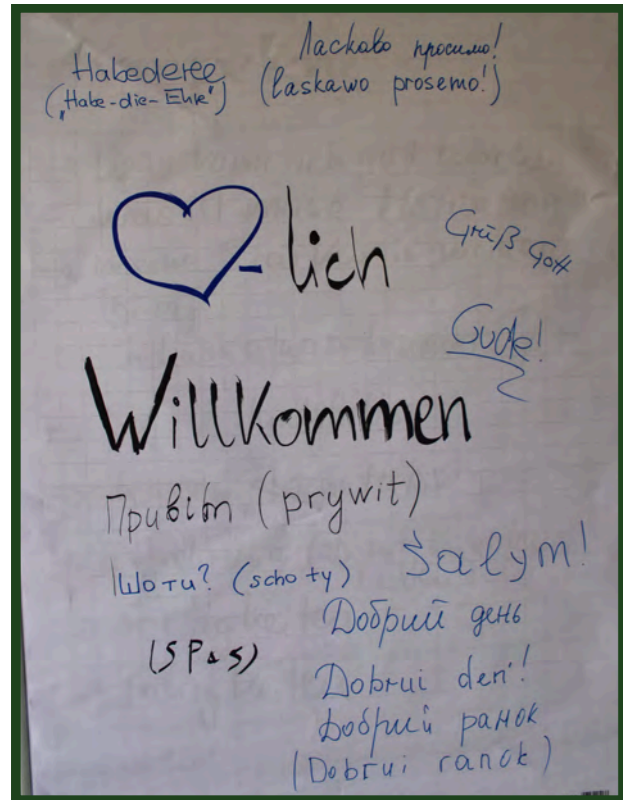 Habederee
("Habe-die-Ehre")
Ласкаво просимо!
(laskawo prosemo!)
-lich
Grüß Gott
Gude!
Willkommen
Привіт (prywit)
Шо ти? (scho ty)
Šalym!
Добрий день
Dobrui den'!
Добрий ранок
(Dobrui ranok)